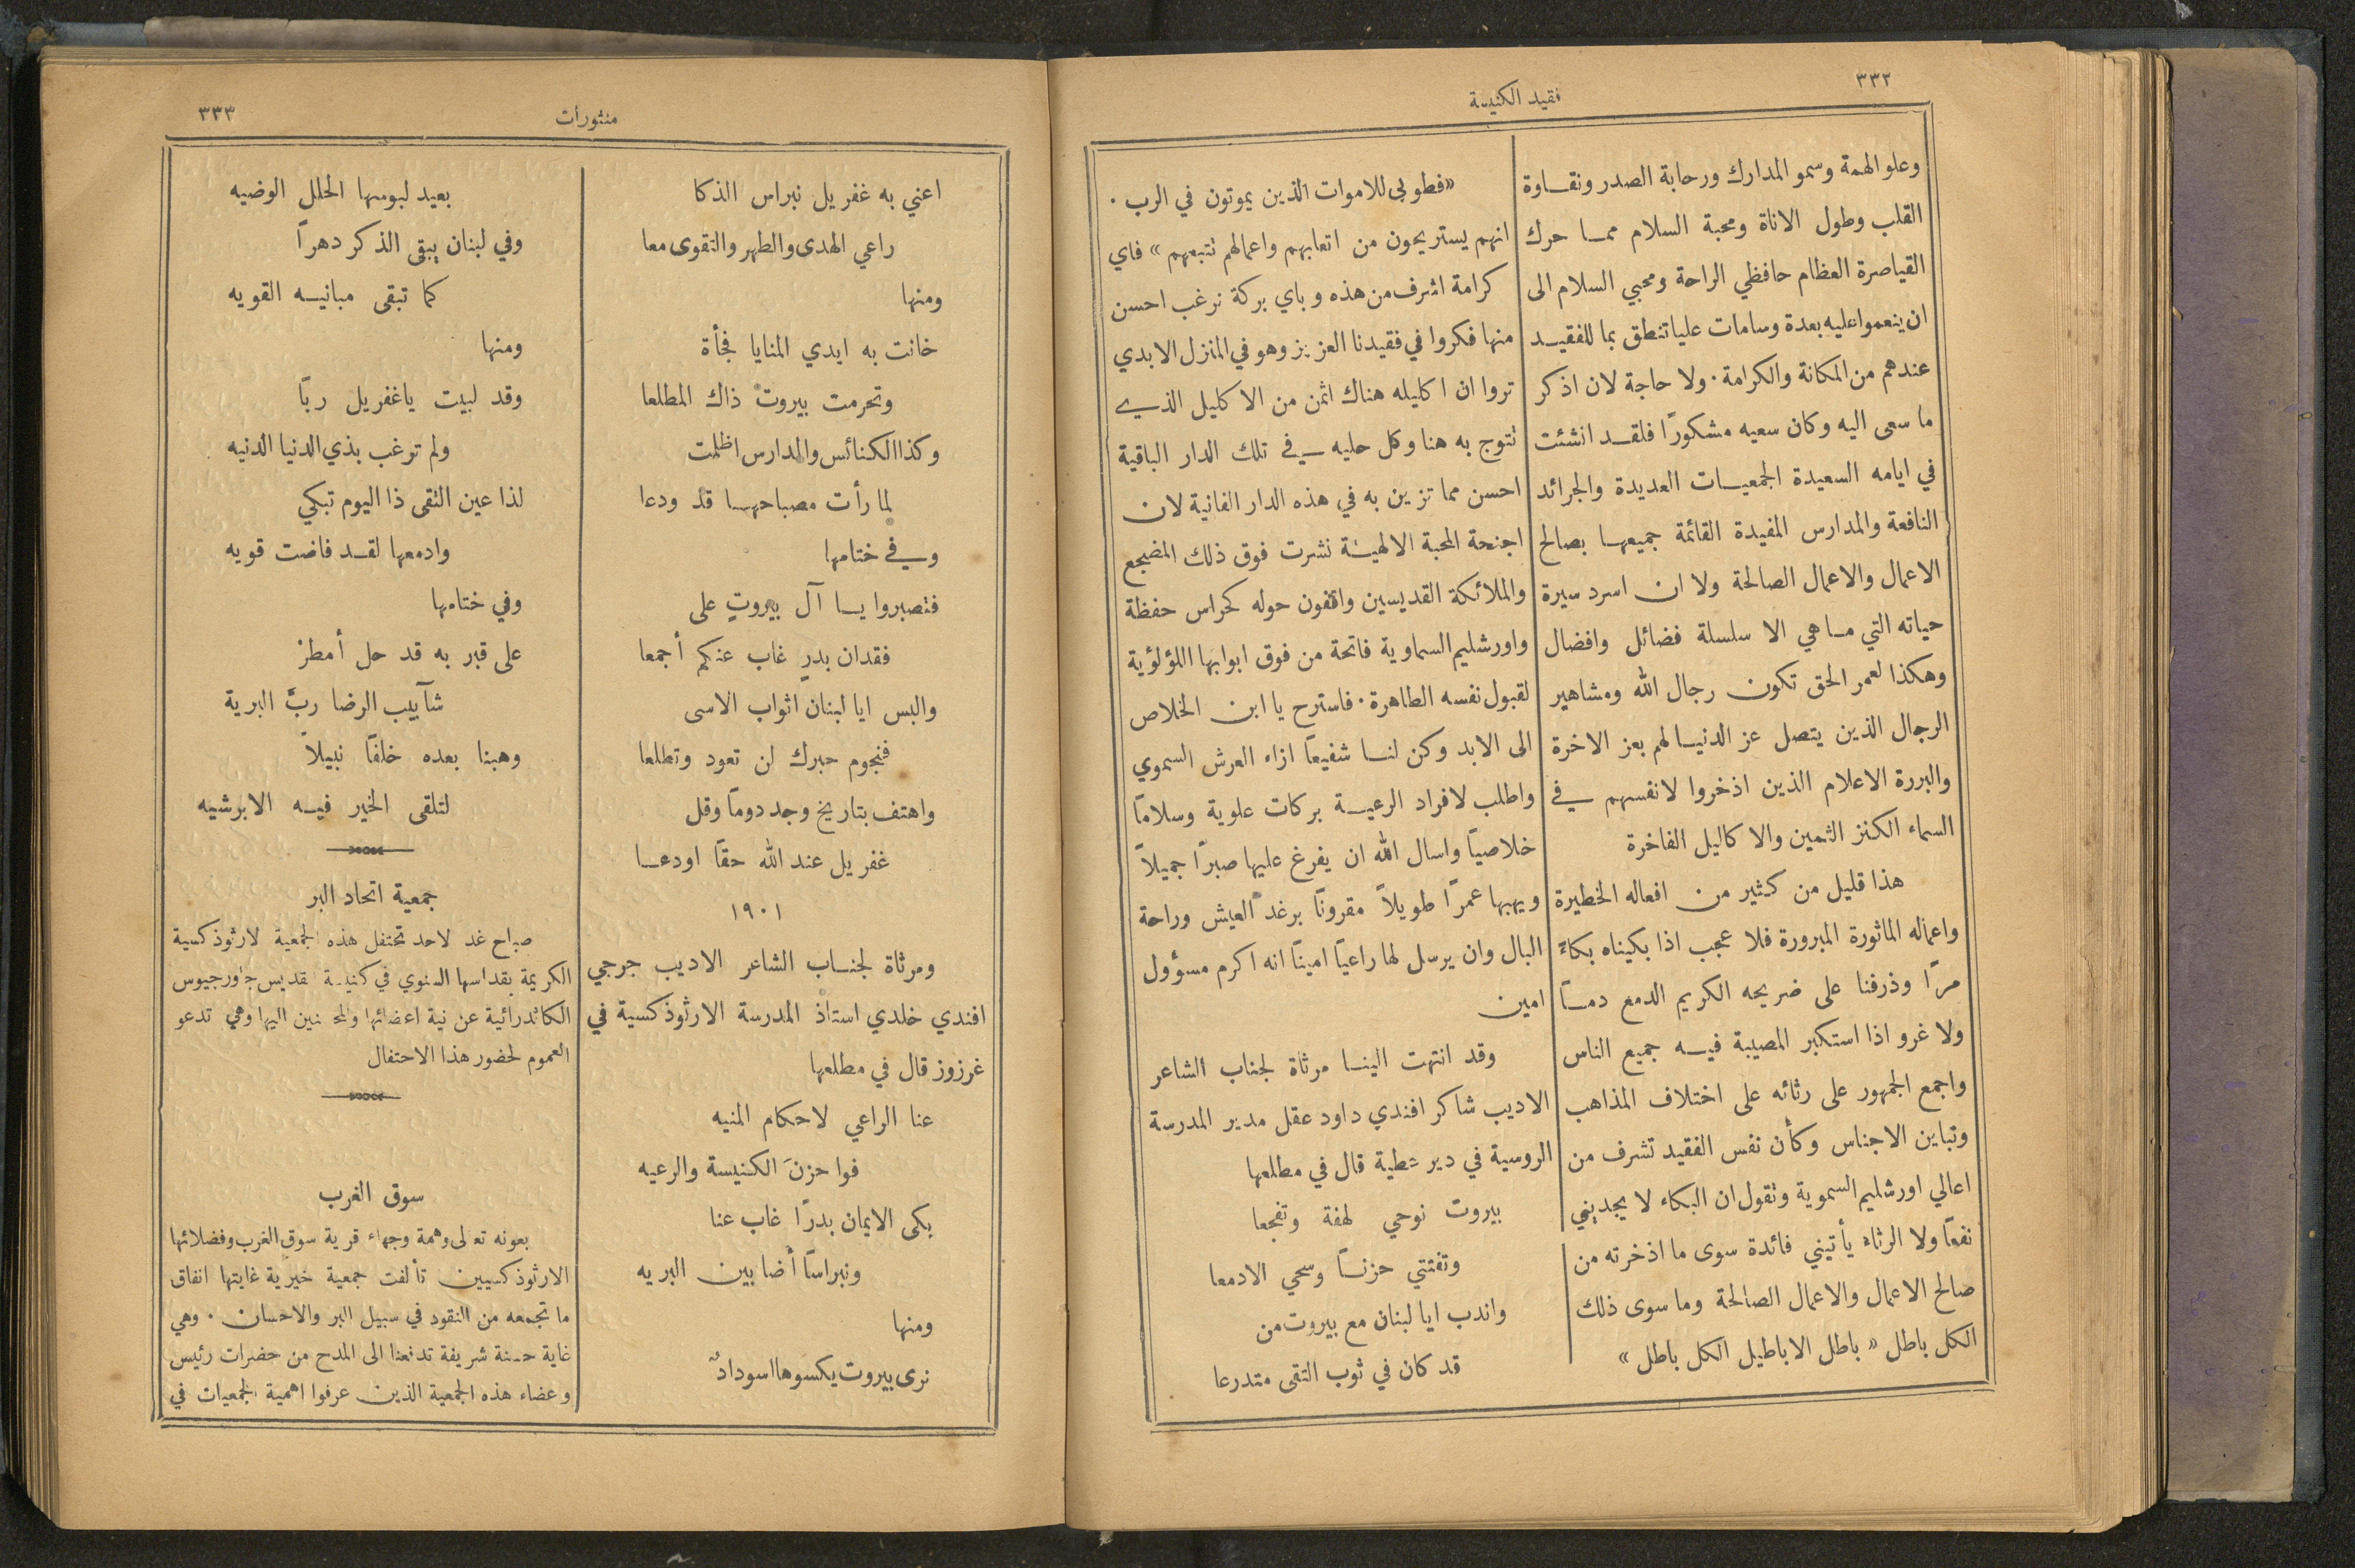 ٣٣٢
فقيد الكنيسة
وعلو الهمة وسمو المدارك ورحابة الصدر ونقاوة
القلب وطول الاناة ومحبة السلام مما حرك
القياصرة العظام حافظي الراحة ومحبي السلام الى
ان ينعموا عليه بعدة وسامات عليا تنطق بما للفقيد
عندهم من المكانة والكرامة . ولا حاجة لان اذكر
ما سعى اليه وكان سعيه مشكورًا فلقد انشئت
في ايامه السعيدة الجمعيات العديدة والجرائد
النافعة والمدارس المفيدة القائمة جميعها بصالح
الاعمال والاعمال الصالحة ولا ان اسرد سيرة
حياته التي ما هي الا سلسلة فضائل وافضال
وهكذا لعمر الحق تكون رجال الله ومشاهير
الرجال الذين يتصل عز الدنيا لهم بعز الاخرة
والبررة الاعلام الذين اذخروا لانفسهم في
السماء الكنز الثمين والاكاليل الفاخرة
هذا قليل من كثير من افعاله الخطيرة
واعماله الماثورة المبرورة فلا عجب اذا بكيناه بكاءً
مرًا وذرفنا على ضريحه الكريم الدمع دمًا
ولا غرو اذا استكبر المصيبة فيه جميع الناس
واجمع الجمهور على رثائه على اختلاف المذاهب
وتباين الاجناس وكأن نفس الفقيد تشرف من
اعالي اورشليم السموية وتقول ان البكاء لا يجديني
نفعًا ولا الرثاء يأتيني فائدة سوى ما اذخرته من
صالح الاعمال والاعمال الصالحة وما سوى ذلك
الكل باطل « باطل الاباطيل الكل باطل »
«فطوبى للاموات الذين يموتون في الرب .
انهم يستريحون من اتعابهم واعمالهم تتبعهم » فاي
كرامة اشرف من هذه وباي بركة نرغب احسن
منها فكروا في فقيدنا العزيز وهو في المنزل الابدي
تروا ان اكليله هناك اثمن من الاكليل الذي
تتوج به هنا وكل حليه في تلك الدار الباقية
احسن مما تزين به في هذه الدار الفانية لان
اجنحة المحبة الالهية نشرت فوق ذلك المضجع
والملائكة القديسين واقفون حوله كحراس حفظة
واورشليم السماوية فاتحة من فوق ابوابها اللؤلؤية
لقبول نفسه الطاهرة . فاسترح يا ابن الخلاص
الى الابد وكن لنا شفيعًا ازاء العرش السموي
واطلب لافراد الرعية بركات علوية وسلامًا
خلاصيًا واسال الله ان يفرغ عليها صبرًا جميلاً
ويهبها عمرًا طويلاً مقرونًا برغد العيش وراحة
البال وان يرسل لها راعيًا امينًا انه اكرم مسؤول
امين
وقد انتهت الينا مرثاة لجناب الشاعر
الاديب شاكر افندي داود عقل مدير المدرسة
الروسية في دير عطية قال في مطلعها
بيروت نوحي لهفة وتفجعا
وتفتتي حزنًا وسحي الادمعا
واندب ايا لبنان مع بيروت من
قد كان في ثوب التقى متدرعا
منثورات
٣٣٣
اعني به غفريل نبراس الذكا
راعي الهدى والطهر والتقوى معا
ومنها
خانت به ايدي المنايا فجأة
وتحرمت بيروت ذاك المطلعا
وكذا الكنائس والمدارس اظلمت
لما رأت مصباحها قد ودعا
وفي ختامها
فتصبروا يا آل بيروتٍ على
فقدان بدرٍ غاب عنكم أجمعا
والبس ايا لبنان اثواب الاسى
فنجوم حبرك لن تعود وتطلعا
واهتف بتاريخ وجد دومًا وقل
غفريل عند الله حقًا اودعا
١٩٠١
ومرثاة لجناب الشاعر الاديب جرجي
افندي خلدي استاذ المدرسة الارثوذكسية في
غرزوز قال في مطلعها
عنا الراعي لاحكام المنيه
فوا حزنَ الكنيسة والرعيه
بكى الايمان بدرًا غاب عنا
ونبراسًا أضا بين البريه
ومنها
نرى بيروت يكسوها اسودادٌ
بعيد لبوسها الحلل الوضيه
وفي لبنان يبقى الذكر دهرًا
كما تبقى مبانيه القويه
ومنها
وقد لبيت يا غفريل ربًا
ولم ترغب بذي الدنيا الدنيه
لذا عين التقى ذا اليوم تبكي
وادمعها لقد فاضت قويه
وفي ختامها
على قبر به قد حل أمطز
شآبيب الرضا ربَّ البرية
وهبنا بعده خلفًا نبيلاً
لتلقى الخير فيه الابرشيه
جمعية اتحاد البر
صباح غد لاحد تحتفل هذه الجمعية لارثوذكسية
الكريمة بقداسها السنوي في كنيسة القديس جاورجيوس
الكاتدرائية عن نية اعضائها والمحسنين اليها وهي تدعو
العموم لحضور هذا الاحتفال
سوق الغرب
بعونه تعالى وهمة وجهاء قرية سوق الغرب وفضلائها
الارثوذكسيين تألفت جمعية خيرية غايتها انفاق
ما تجمعه من النقود في سبيل البر والاحسان . وهي
غاية حسنة شريفة تدفعنا الى المدح من حضرات رئيس
وعضاء هذه الجمعية الذين عرفوا اهمية الجمعيات في